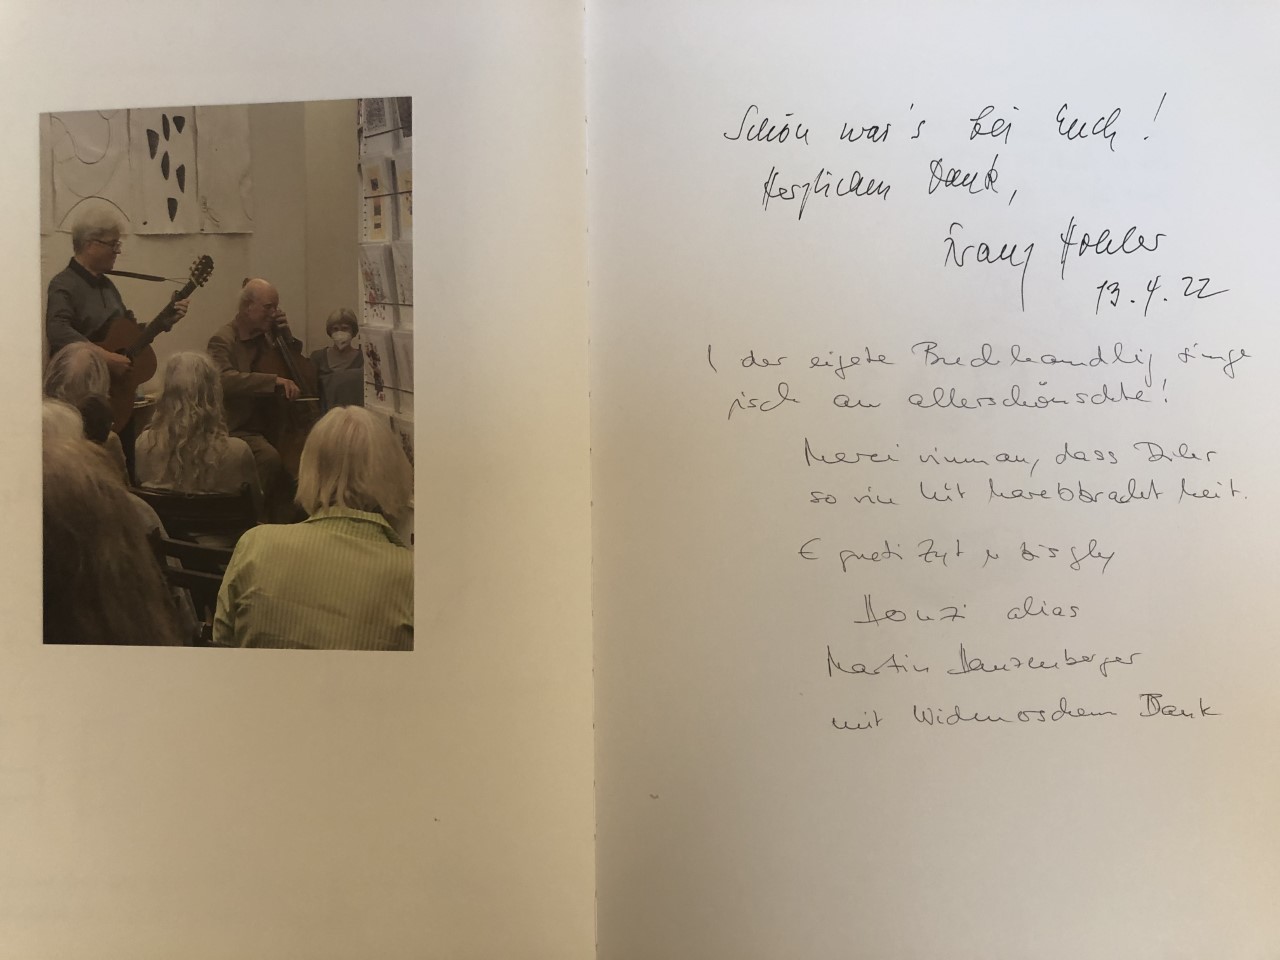 Schön war's bei Euch!
Herzlichen Dank,
Franz Hohler
13.4.22
I der eigete Buechhandlig singe
isch am allerschönschte!
Merci vilmau, dass Diler
so vil Lüt harebbracht heit.
E gueti Zyt u bis gly
Housi alias
Martin Hauzenberger
mit Widmerschem Dank